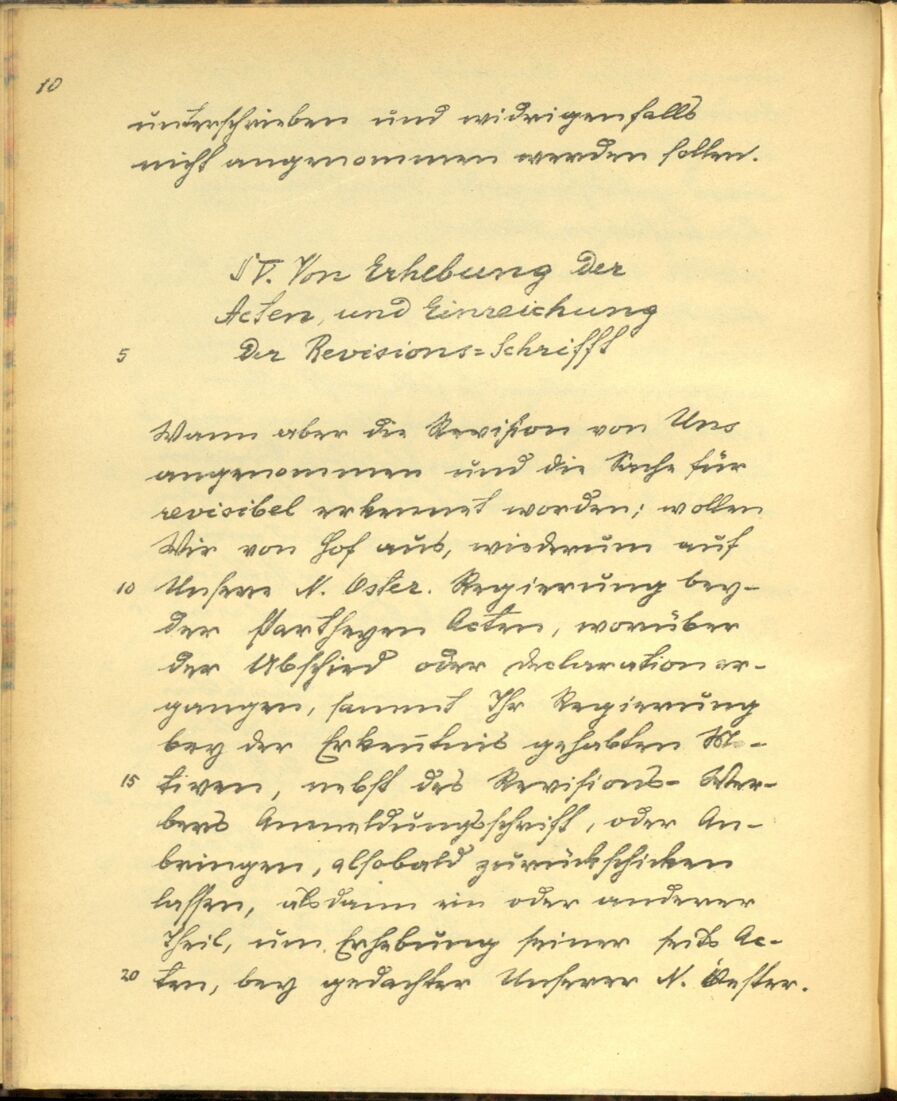 10
unterschrieben und widrigenfalls
nicht angenommen werden sollen.
§ V. Von Erhebung der
Acten, und Einreichung
5 der Revisions=Schrifft
Wann aber die Revision von Uns
angenommen und die Sache für
revisibel erkennet worden; wollen
Wir von Hof aus, wiederum auf
10 Unsere N. Oster. Regierung bey-
der Partheyen Acten, worüber
der Abschied oder declaration er-
gangen, sammt Ihr Regierung
bey der Erkeñtnis gehabten Mo-
15 tiven, nebst des Revisions- Wer-
bers Anmeldungsschrift, oder An-
bringen, alsobald zurückschicken
lassen, alsdann ein oder anderer
Theil, um Erhebung seiner seits Ac-
20 ten, bey gedachter Unserer N. Oester.